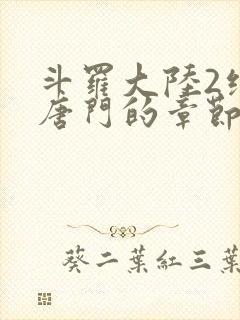 斗羅大陸2
唐門的章節
葵二葉紅三葉